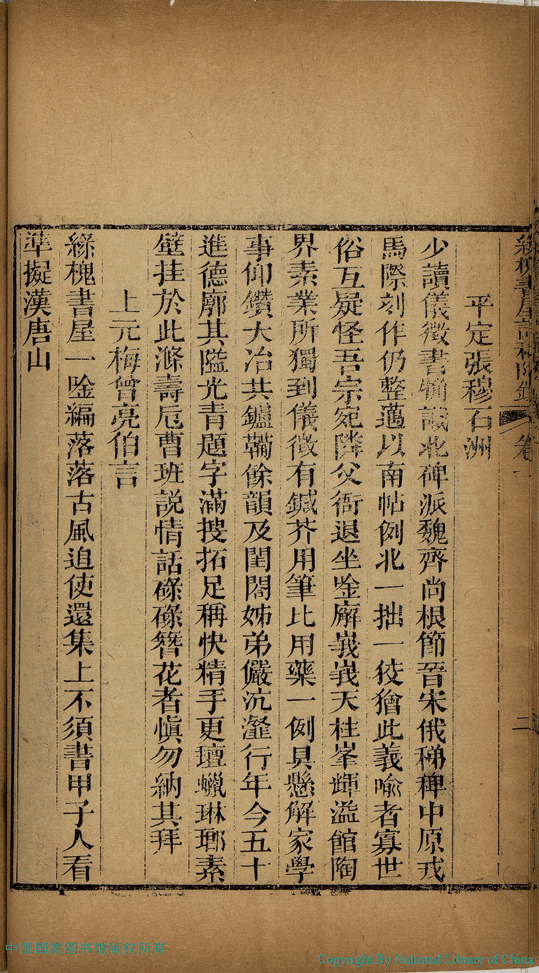 綠槐書屋詩稿附錄 卷一
二
平定張穆石洲
少讀儀徵書觕識北碑派魏齊尚根節晉宋俄稊稗中原戎
馬際刻作仍整邁以南帖例北一拙一狡獪此義喻者寡世
俗互疑怪吾宗宛隣父衙退坐唫廨峩峩天柱峯輝溢館陶
界素業所獨到儀徵有鍼芥用筆比用藥一例具懸解家學
事仰鑽大冶共鑪鞴餘韻及閨閤姊弟儼沆瀣行年今五十
進德廓其隘光青題字滿搜拓足稱快精手更璮蠟琳瑯素
壁挂於此滌壽卮曹班説情話磏磏簪花者愼勿納其拜
上元梅曾亮伯言
綠槐書屋一唫編落落古風追使還集上不須書甲子人看
準擬漢唐山
中国国家图书馆数位所有
Copyright By National Library of China